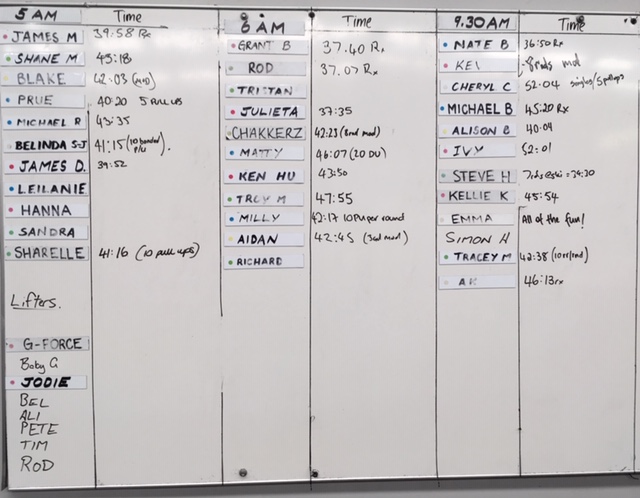 5 AM Time
JAMES M 39:58 Rx
SHANE M 45:18
BLAKE 42:03
PRUE 40:20 5 PULL UPS
MICHAEL R 43:35
BELINDA S-J 41:15 (10 banded P/U)
JAMES D. 39:52
LEILANIE
HANNA
SANDRA
SHARELLE 41:16 (10 pull ups)
Lifters.
G-FORCE
Baby G
JODIE
BEL
ALI
PETE
TIM
ROD
6 AM Time
GRANT B 37.40 Rx
ROD 37.07 Rx
TRISTAN
JULIETA 37:35
CHAKKERZ 42:23 (8rnd mod)
MATTY 46:07 (20 DU)
KEN HU 43:50
TROY M 47:55
MILLY 42:17 10 PU per round
AIDAN 42:45
RICHARD
9.30AM Time
NATE B 36:50 Rx
KEI - 8rnds mod
CHERYL C 52.04 singles/5pullups
MICHAEL B 45:20 Rx
ALISON B 40:04
IVY 52:01
STEVE H
KELLIE K 45:54
EMMA All of the fun!
SIMON H
TRACEY M 42:38
AK 46:13rx